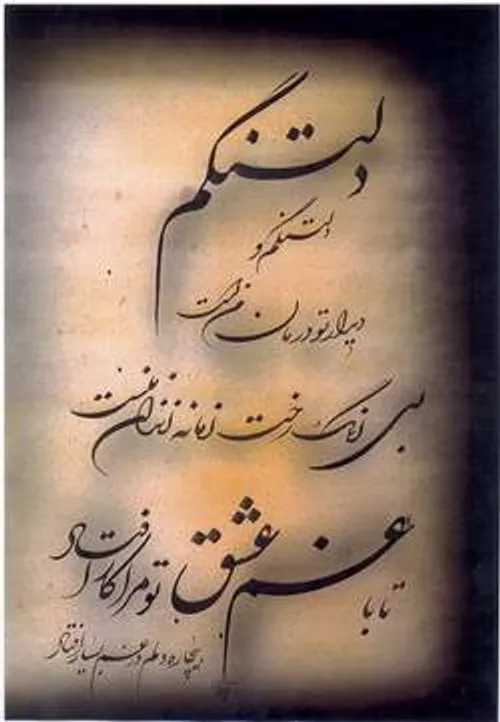 دلتنگم
دلتنگم و
دیدار تو درمان من است
بی رنگ رخت زمانه زندان منست
تا با غم عشق تو مرا کار افتاد
بیچاره دلم در غم بسیار افتاد